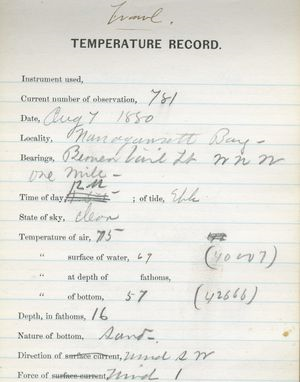 Trawl.
TEMPERATURE RECORD.
Instrument used,
Current number of observation, 781
Date, Aug 7 1880
Locality, Narragansett Bay -
Bearings, Beaver tail Lt W N W
one mile -
12 M
Time of day, ; of tide, Ebb
State of sky, clear
Temperature of air, 75
" surface of water, 67 (40007)
" at depth of fathoms,
" of bottom, 57 (42666)
Depth, in fathoms, 16
Nature of bottom, Sand -
Direction of surface current, Wind S W
Force of surface current, Wind 1